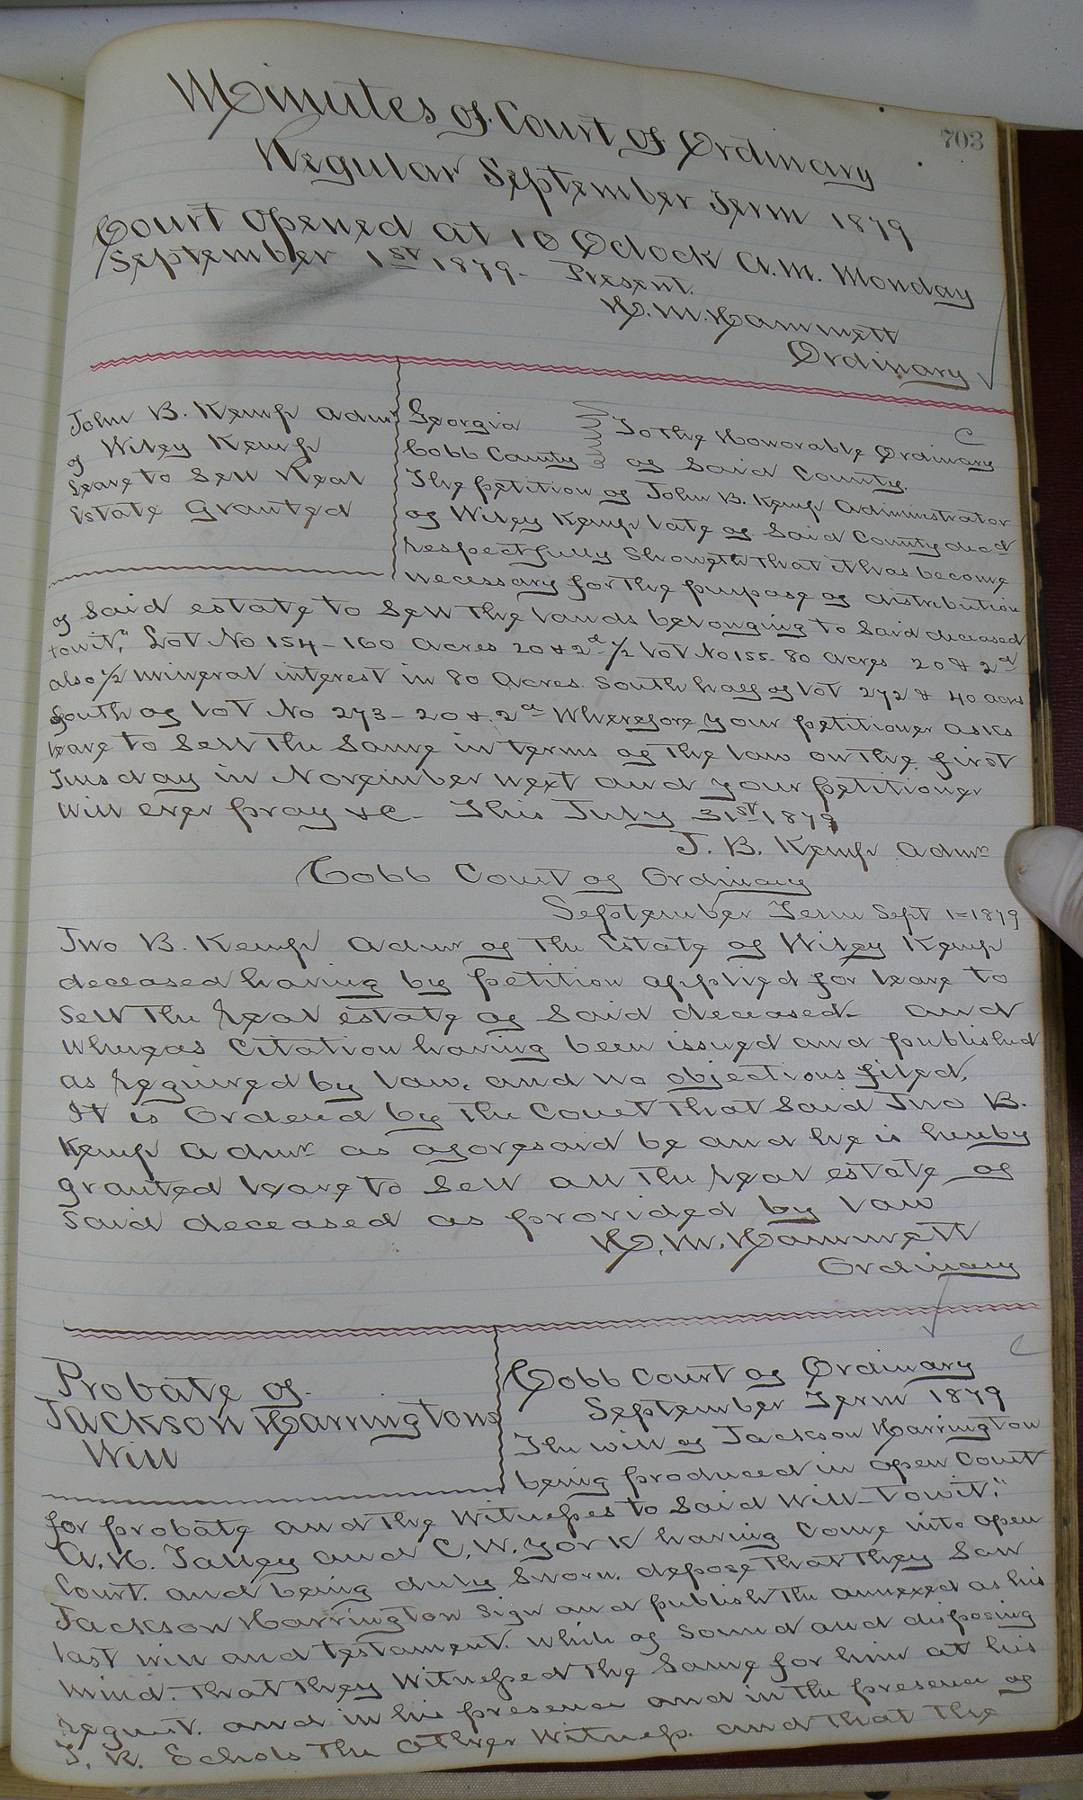 703
Minutes of Court of Ordinary
Regular September Term 1879
Court opened at 10 Oclock A.M. Monday
September 1st 1879- Present.
H. M. Hammett
Ordinary
John B. Kemp Admr
of Wiley Kemp
Leave to Sell Real
Estate Granted
Georgia
Cobb County
To the Honorable Ordinary
of Said County.
The petition of John B. Kemp Administrator
of Wiley Kemp late of Said County decd
respectfully Showeth that it has become
necessary for the purpose of distribution
of Said estate to Sell the lands belonging to Said deceased
towit," Lot No 154- 160 Acres 20 & 2d 1/2 lot No 155- 80 Acres 20 & 2d
also 1/2 mineral interest in 80 Acres South half of lot 272 & 40 acres
South of lot No 273- 20 & 2d Wherefore your petitioner asks
leave to Sell the Same in terms of the law on the first
Tusday in November next and your petitioner
will ever pray &c- This July 31st 1879
J. B. Kemp Admr
Cobb Court of Ordinary
September Term Sept 1= 1879
Jno B. Kemp Admr of the Estate of Wiley Kemp
deceased having by petition applied for leave to
Sell the real estate of Said deceased- and
whereas Citation having been issued and published
as required by law, and no objections filed,
It is Ordered by the Court that Said Jno B.
Kemp Admr as aforesaid be and he is hereby
granted leave to Sell all the real estate of
Said deceased as provided by law
H. M. Hammett
Ordinary
Probate of
Jackson Harringtons
Will
Cobb Court of Ordinary
September Term 1879
The will of Jackson Harrington
being produced in open Court
for probate and the Witnesses to Said Will- Towit,"
A. H. Talley and C. W. York having Come into open
Court. and being duly Sworn. depose that they Saw
Jackson Harrington Sign and publish the annexed as his
last will and testament. while of Sound and disposing
mind. that they Witnessed the Same for him at his
request. and in his presence and in the presence of
R. Echols the other Witness. and that the